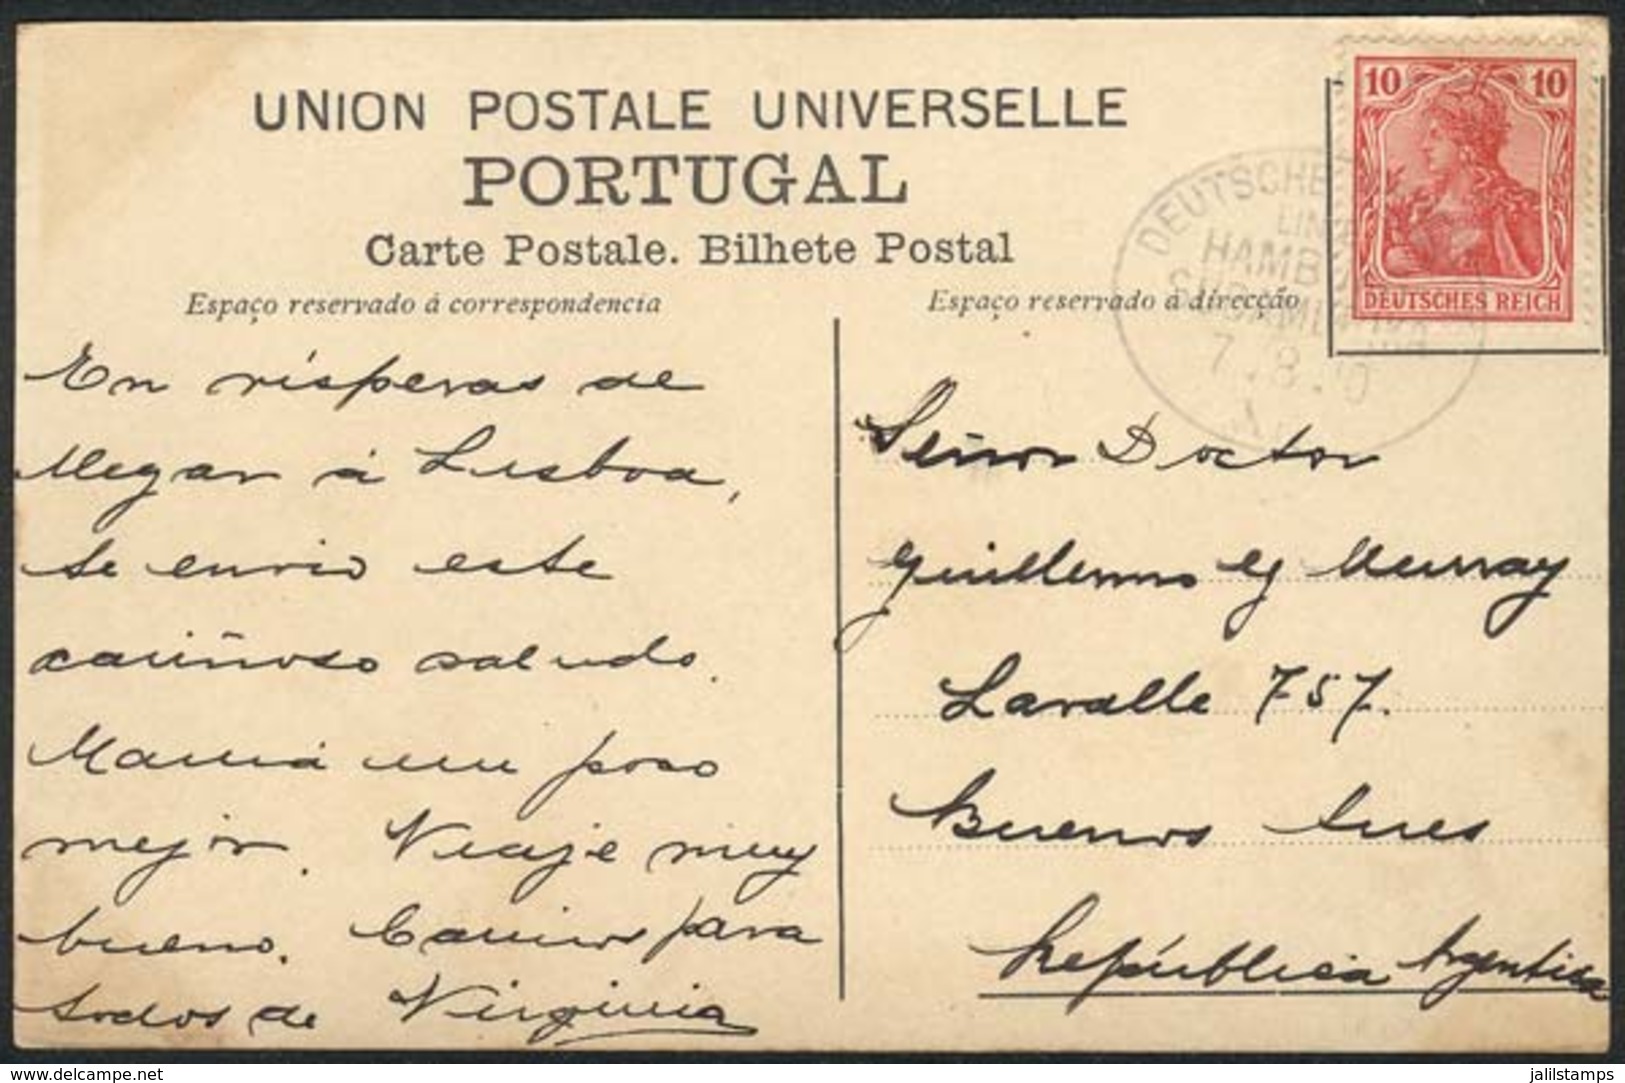 UNION POSTALE UNIVERSELLE
PORTUGAL
Carte Postale. Bilhete Postal
Espaço reservado á correspondencia
Espaço reservado á direcção
10 10
DEUTSCHES REICH
DEUTSCHE
LIN
HAMB
7.8.10
En vísperas de
llegar á Lisboa,
te envio este
cariñoso saludo.
Mamá un poco
mejor. Viaje muy
bueno. Cariños para
todos de Virginia
Señor Doctor
Guillermo G Murray
Lavalle 757.
Buenos Aires
República Argentina
www.delcampe.net
jalilstamps